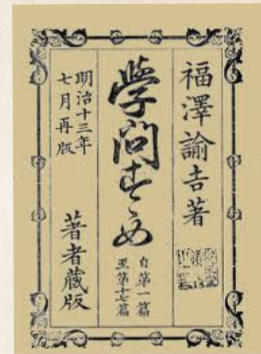 福澤諭吉著
學問すゝめ
自第一篇
至第十七篇
明治十三年
七月再版
著者藏版